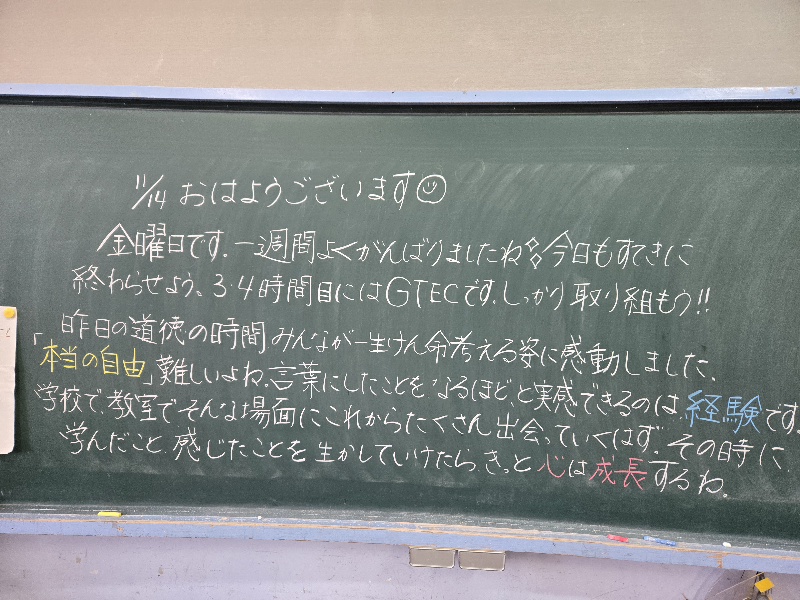 11/14 おはようございます☺
金曜日です. 一週間よくがんばりましたね✧✧今日もすてきに
終わらせよう。3・4時間目にはGTECです. しっかり取り組もう!!
昨日の道徳の時間 みんなが一生けん命考える姿に感動しました.
「本当の自由」難しいよね. 言葉にしたことを なるほど、と実感できるのは 経験です.
学校で. 教室で そんな場面に これからたくさん出会っていくはず. その時に
学んだこと 感じたことを 生かしていけたら. きっと 心は成長するね.